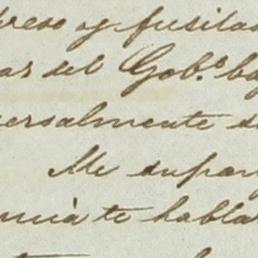 preso y fusilad
as del Gob.º ba
ersalmente d
Me supon
uncia te habla